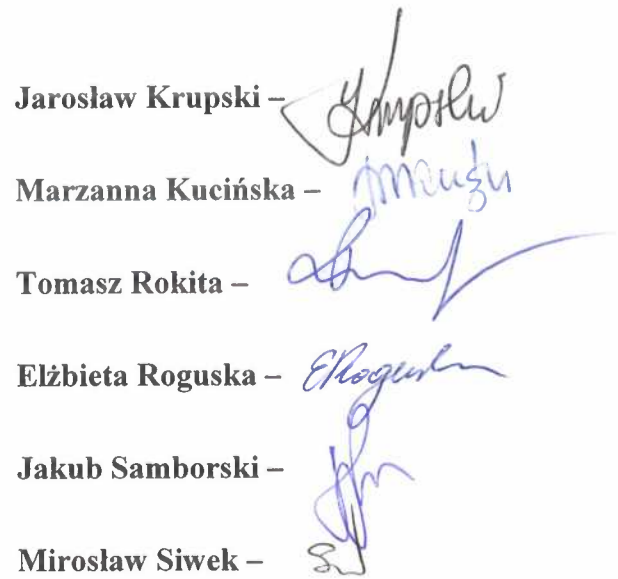 Jarosław Krupski –
Marzanna Kucińska –
Tomasz Rokita –
Elżbieta Roguska – ERoguska
Jakub Samborski –
Mirosław Siwek –